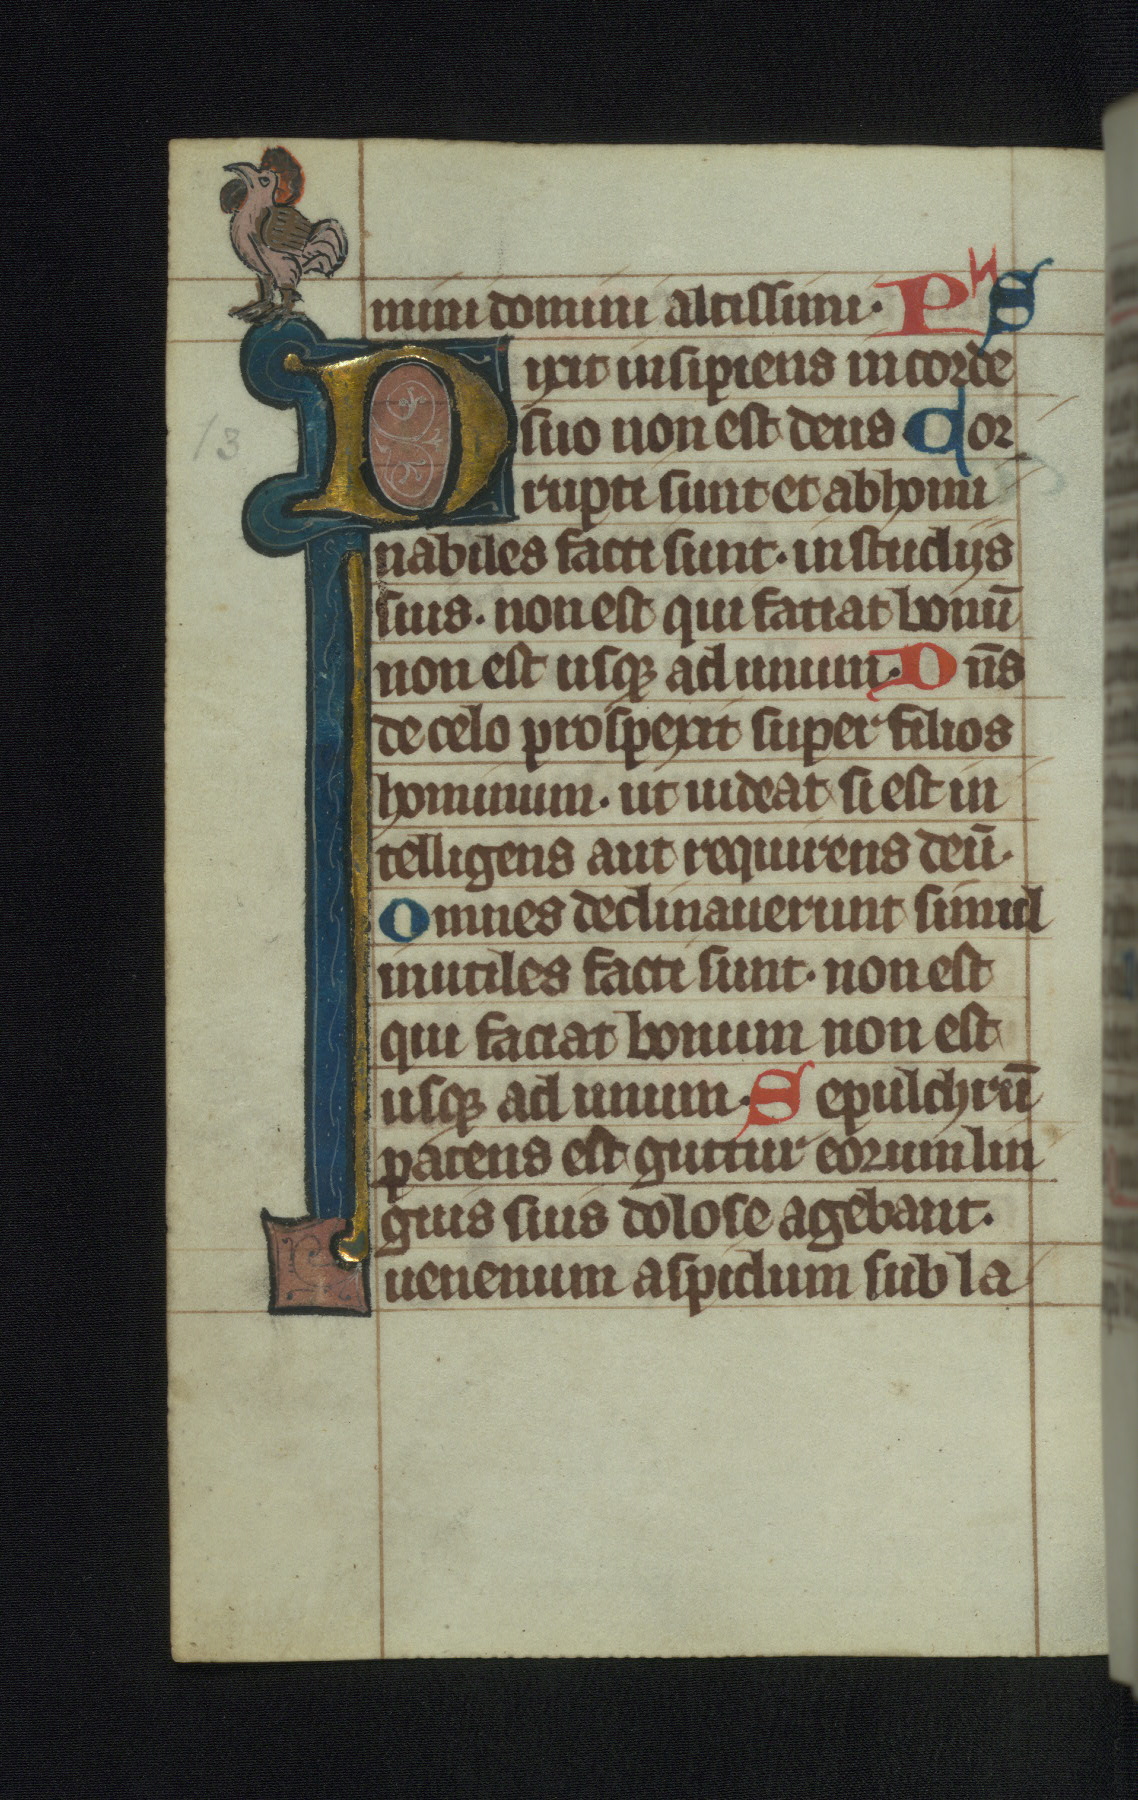 mini domini altissimi· PS
Dixit insipiens in corde
suo non est deus Cor
rupti sunt et abhomi
nabiles facti sunt· in studiis
suis· non est qui faciat bonū
non est usqꝫ ad unum· Dn̄s
de celo prospexit super filios
hominum· ut uideat si est in
telligens aut requirens deū·
Omnes declinauerunt simul
inutiles facti sunt· non est
qui faciat bonum non est
usqꝫ ad unum· Sepulchrū
patens est guttur eorum lin
guis suis dolose agebant·
uenenum aspidum sub la
13